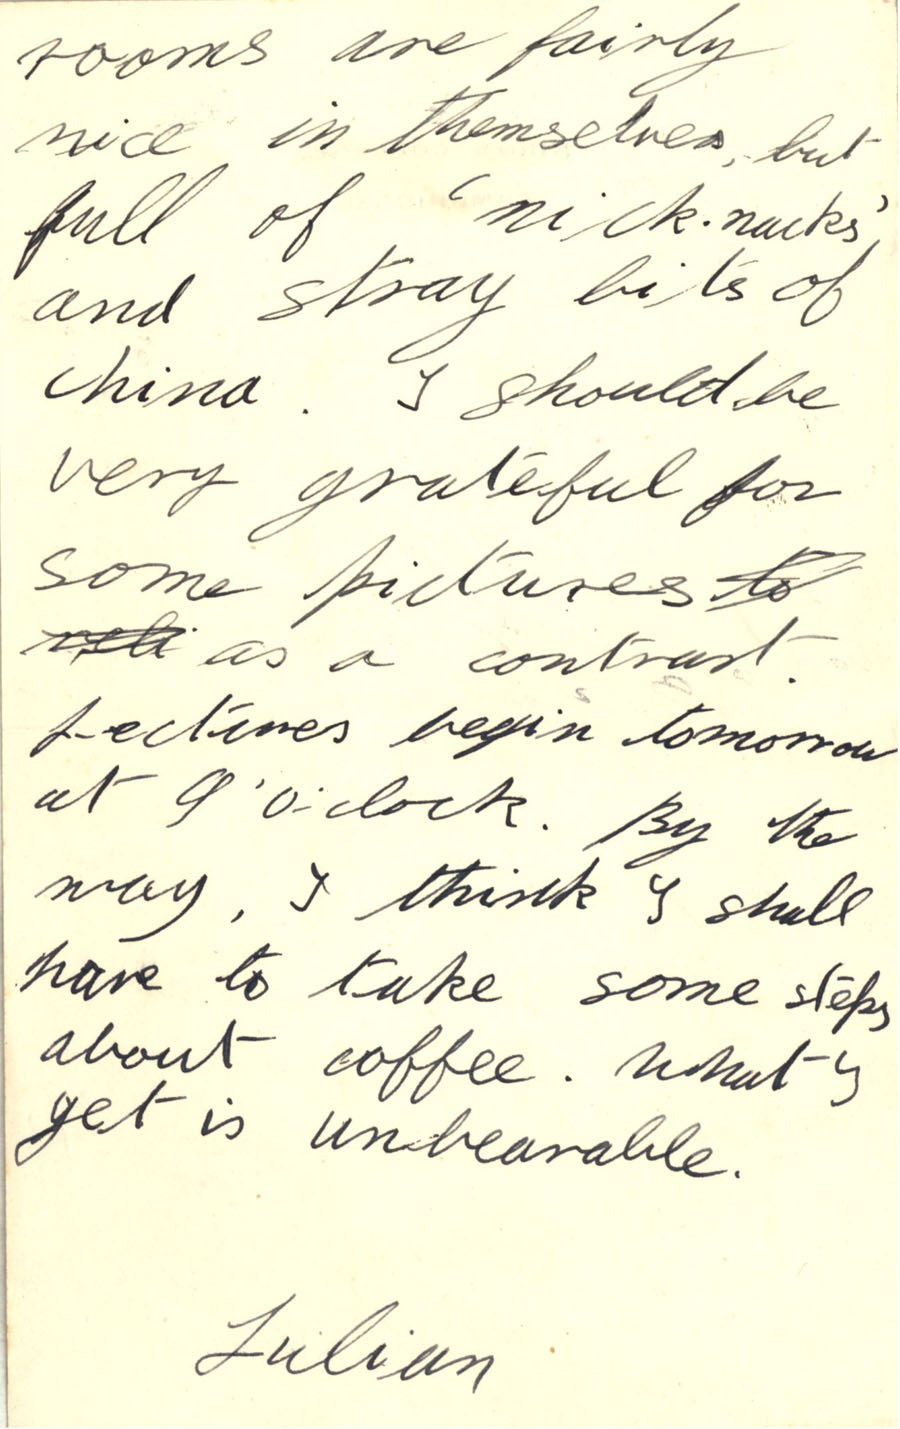 rooms are fairly
nice in themselves, but
full of 'nick-nacks'
and stray bits of
china. I should be
very grateful for
some pictures to
reli as a contrast.
Lectures begin tomorrow
at 9 'o'clock. By the
way, I think I shall
have to take some steps
about coffee. What I
get is unbearable.
Julian